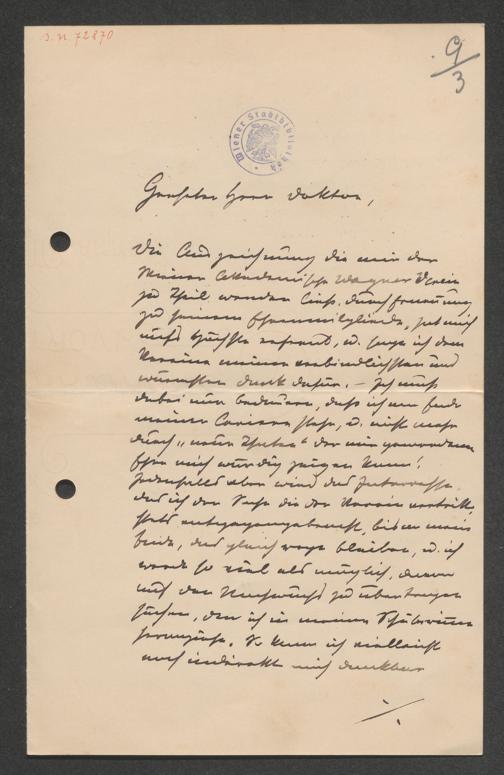 J.N. 72870
9/3
Wiener Stadtbibliothek
Geehrter Herr Doktor,
Die Auszeichnung die mir der
Wiener Akademische Wagner Verein
zu Theil werden ließ, durch Ernennung
zu seinem Ehrenmitgliede, hat mich
aufs Höchste erfreut, u. sage ich dem
Vereine meinen verbindlichsten und
wärmsten Dank dafür. – Ich muß
dabei nur bedauern, daß ich am Ende
meiner Carriere stehe, u. nicht mehr
durch „neue Thaten“ der mir gewordenen
Ehre mich würdig zeigen kann!
Jedenfalls aber wird das Interesse,
das ich der Sache die der Verein vertritt,
stets entgegengebracht, bis an mein
Ende, das gleich rege bleiben, u. ich
werde so viel als möglich, davon
auf den Nachwuchs zu übertragen
suchen, den ich in meinen Schülerinnen
heranziehe. So kann ich vielleicht
noch indirekt mich dankbar
./.